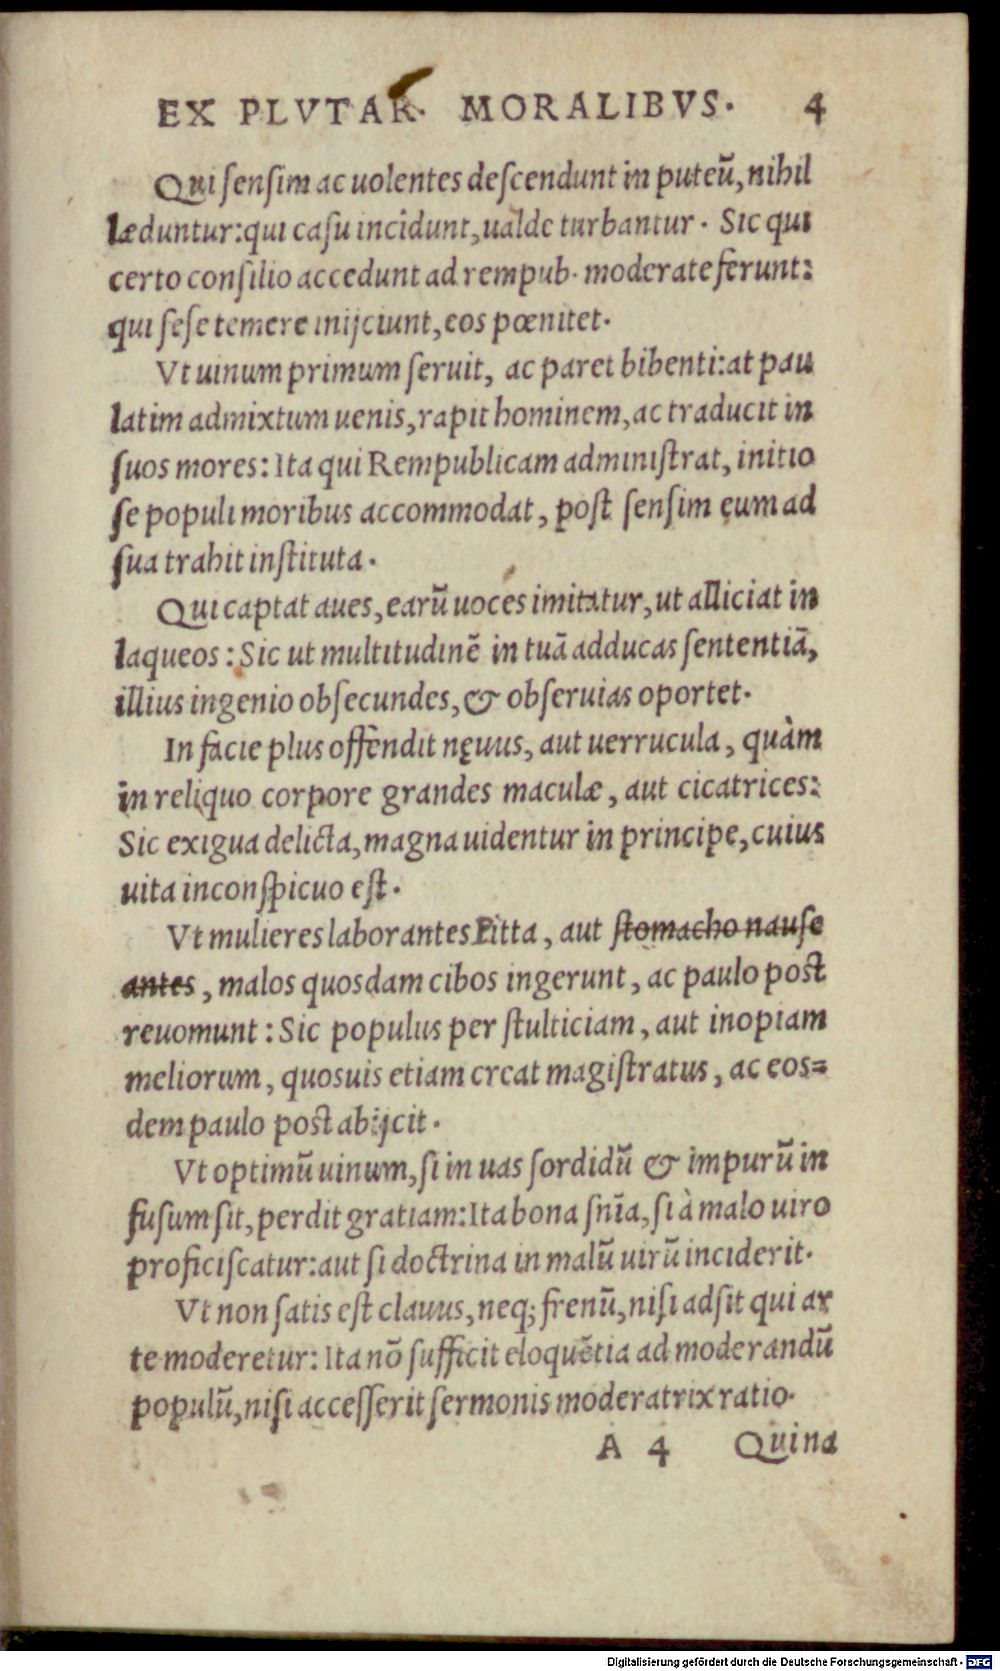 EX PLVTAR. MORALIBVS. 4
Qui sensim ac uolentes descendunt in puteũ, nihil
læduntur: qui casu incidunt, ualde turbantur. Sic qui
certo consilio accedunt ad rempub. moderate ferunt:
qui sese temere inijciunt, eos pœnitet.
Vt uinum primum seruit, ac paret bibenti: at pau
latim admixtum uenis, rapit hominem, ac traducit in
suos mores: Ita qui Rempublicam administrat, initio
se populi moribus accommodat, post sensim eum ad
sua trahit instituta.
Qui captat aues, earũ uoces imitatur, ut alliciat in
laqueos: Sic ut multitudinẽ in tuã adducas sententiã,
illius ingenio obsecundes, & obseruias oportet.
In facie plus offendit nęuus, aut uerrucula, quàm
in reliquo corpore grandes maculæ, aut cicatrices:
Sic exigua delicta, magna uidentur in principe, cuius
uita in conspicuo est.
Vt mulieres laborantes Pitta, aut stomacho nause
antes, malos quosdam cibos ingerunt, ac paulo post
reuomunt: Sic populus per stulticiam, aut inopiam
meliorum, quosuis etiam creat magistratus, ac eos=
dem paulo post abijcit.
Vt optimũ uinum, si in uas sordidũ & impurũ in
fusum sit, perdit gratiam: Ita bona snĩa, si à malo uiro
proficiscatur: aut si doctrina in malũ uirũ inciderit.
Vt non satis est clauus, neq; frenũ, nisi adsit qui ar
te moderetur: Ita nõ sufficit eloquẽtia ad moderandũ
populũ, nisi accesserit sermonis moderatrix ratio.
A 4 Quina
Digitalisierung gefördert durch die Deutsche Forschungsgemeinschaft - DFG